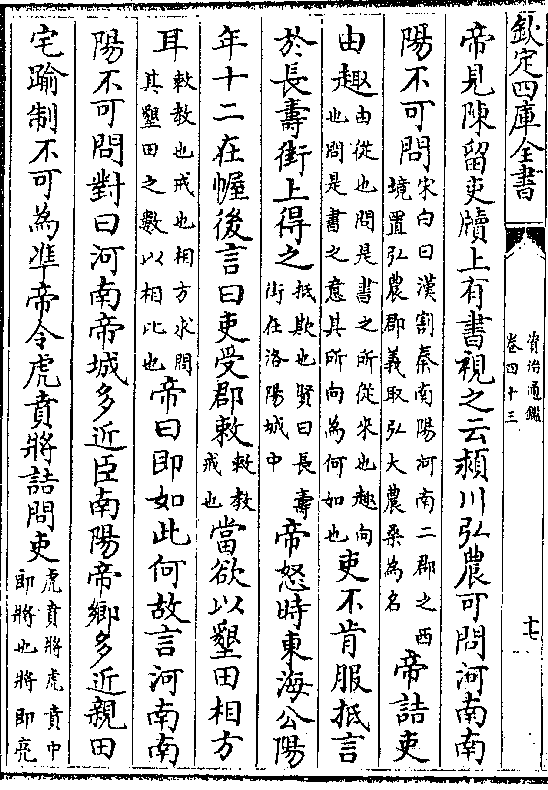 欽定四庫全書
資治通鑑
卷四十三
十七
帝見陳留吏牘上有書視之云潁川弘農可問河南南
陽不可問宋白曰漢割秦南陽河南二郡之西境置弘農郡義取弘大農桑為名帝詰吏
由趣由從也問是書之所從來也趣向也問是書之意其所向為何如也吏不肯服抵言
於長壽街上得之抵欺也賢曰長壽街在洛陽城中帝怒時東海公陽
年十二在幄後言曰吏受郡敕敕教戒也當欲以墾田相方
耳敕教也戒也相方求問其墾田之數以相比也帝曰即如此何故言河南南
陽不可問對曰河南帝城多近臣南陽帝鄉多近親田
宅踰制不可為準帝令虎賁將詰問吏虎賁將虎賁中即將也將即亮